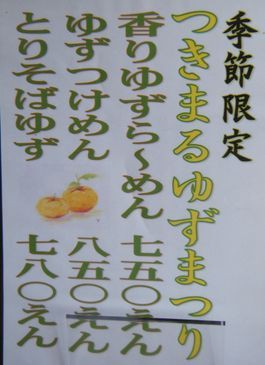 季節限定
つきまるゆずまつり
香りゆずら～めん 七五〇えん
ゆずつけめん 八五〇えん
とりそばゆず 七八〇えん